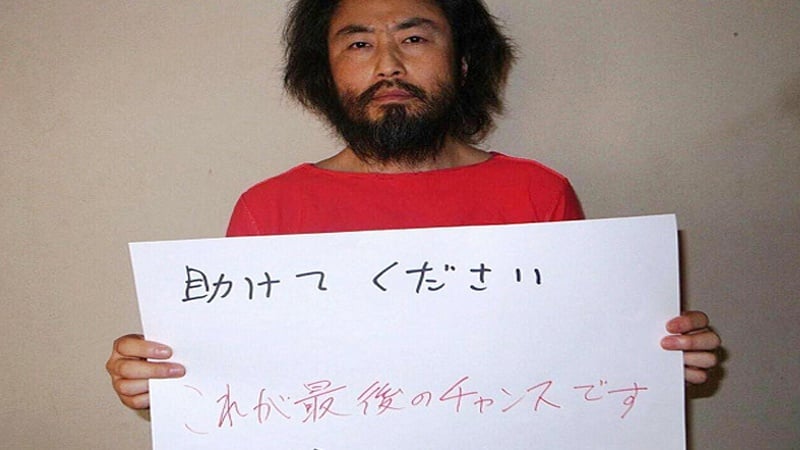 助けてください
これが最後のチャンスです